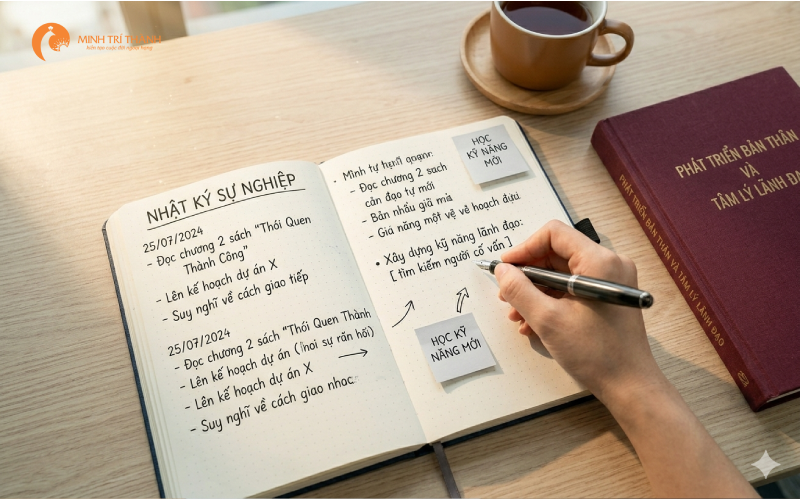 MINH TRÍ THÀNH
NHẬT KÝ SỰ NGHIỆP
25/07/2024
- Đọc chương 2 sách “Thói Quen
Thành Công”
- Lên kế hoạch dự án X
- Suy nghĩ về cách giao tiếp
25/07/2024
- Đọc chương 2 sách “Thói Quen Thành
- Lên kế hoạch dự án
- Lên kế hoạch dự án X
- Suy nghĩ về cách giao nhac
• Mình tự
- Đọc chương 2 sach
cản đạo tự mới
- Bản nhấu giũ
- Giá năng một vệ về hoạch
• Xây dựng kỹ năng lãnh đạo:
[ tìm kiếm người cố vấn ]
HỌC
KỸ NĂNG
MỚI
HỌC KỸ
NĂNG MỚI
PHÁT TRIỂN BẢN THÂN
VÀ
TÂM LÝ LÃNH ĐẠO
PHÁT TRIỂN BẢN THÂN VÀ TÂM LÝ LÃNH ĐẠO